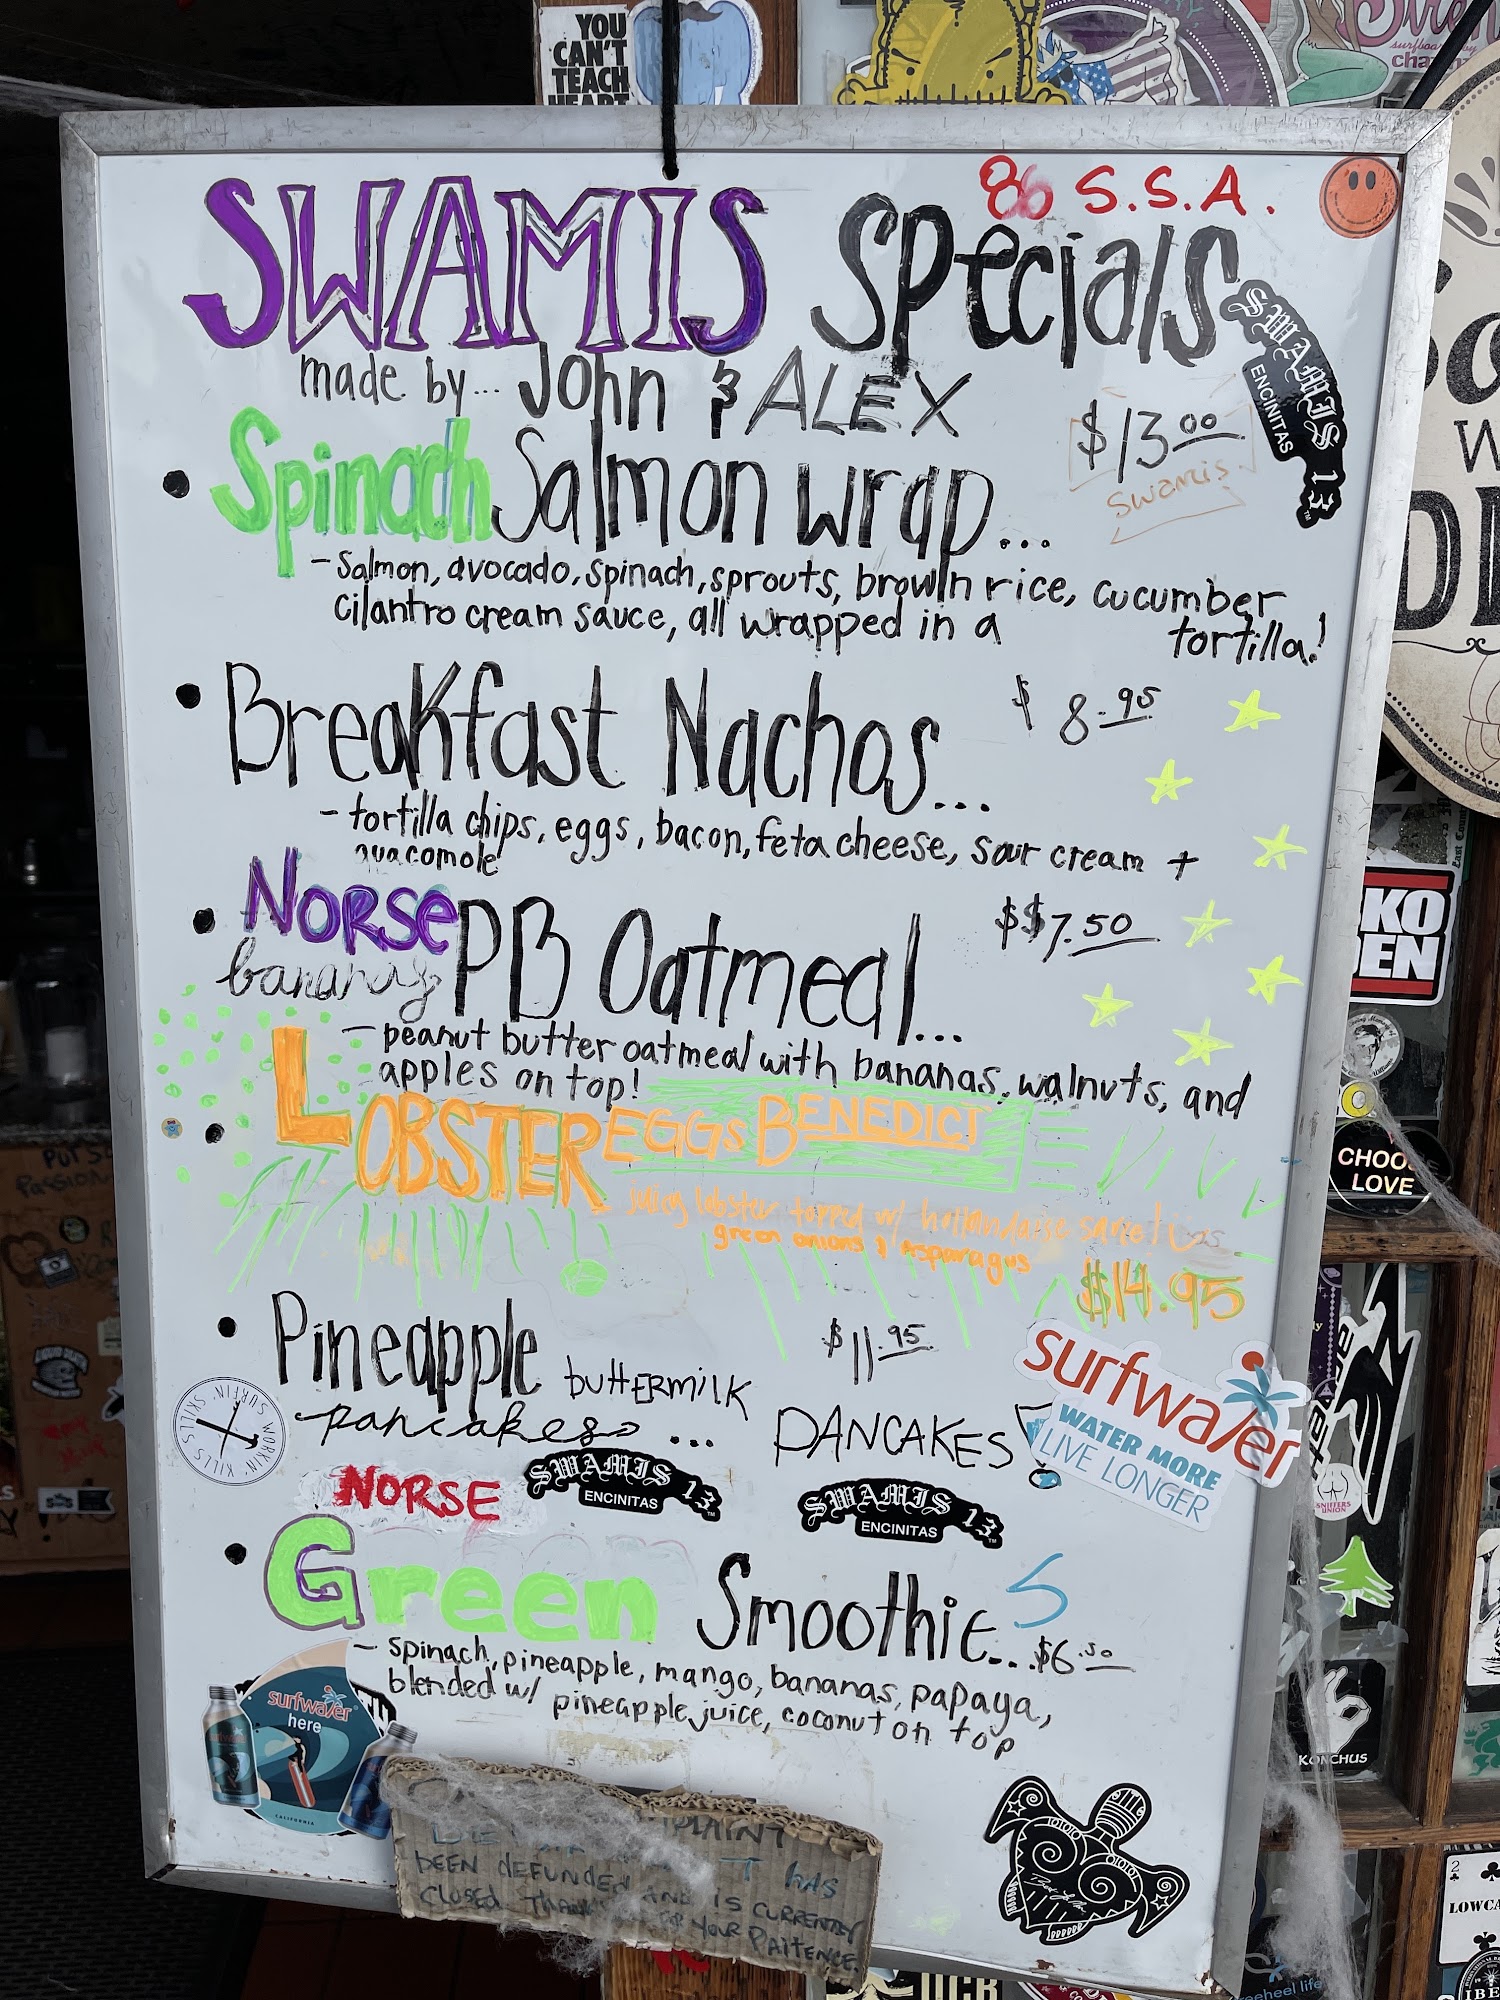 YOU
CAN'T
TEACH
HEART
surfboards by
86 S.S.A.
SWAMIS Specials
made by... John & ALEX
$13.00
Swamis
SWAMIS 13
ENCINITAS
• Spinach Salmon wrap...
- Salmon, avocado, spinach, sprouts, brown rice, cucumber
cilantro cream sauce, all wrapped in a tortilla!
• Breakfast Nachos... $8.95
- tortilla chips, eggs, bacon, feta cheese, sour cream +
guacomole
• NORSE PB Oatmeal... $$7.50
- peanut butter oatmeal with bananas, walnuts, and
apples on top!
• LOBSTER EGGS BENEDICT
juicy lobster topped w/ hollandaise
green onions & Asparagus
$14.95
• Pineapple buttERMilK $11.95
pancakes ... PANCAKES
surfwater
WATER MORE
LIVE LONGER
WORKIN' KILLS SURFIN' SKILLS
NORSE
SWAMIS 13
ENCINITAS
SWAMIS 13
ENCINITAS
• Green Smoothie...S $6.50
- spinach, pineapple, mango, bananas, papaya,
blended w/ pineapple juice, coconut on top
surfwater
here
CALIFORNIA
HAS
BEEN DEFUNDED AND IS CURRENTLY
CLOSED. THANK YOUR PAITENCE.
KO
EN
CHOOSE
LOVE
SNIFFERS
UNION
KONCHUS
2
LOWCA
freeheel life